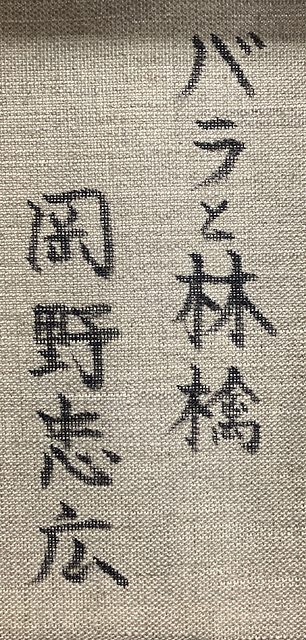 バラと林檎
岡野志広